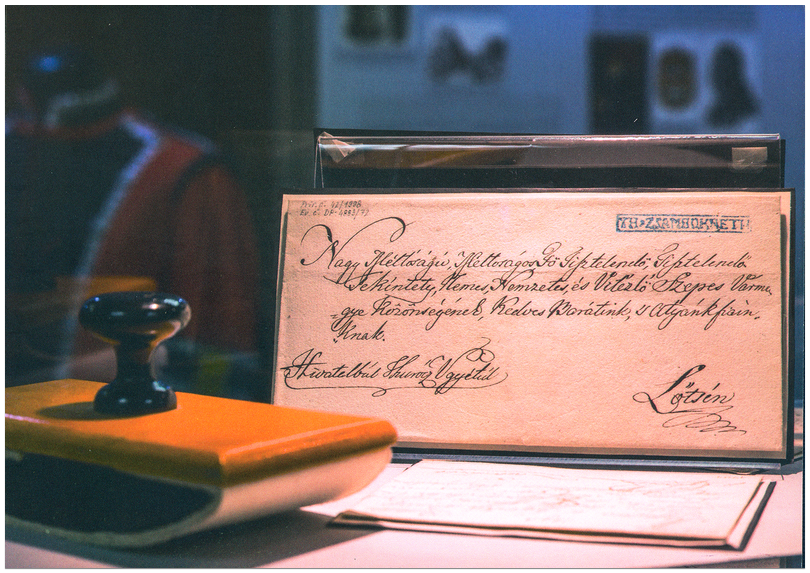 Prír. č. 42/1996
Ev. č. DF-4993/77
TH•ZSAMBOKRETH
Nagy Méltóságú, Méltóságos Fő Tiptelendő Tiptelendő
Tekintetes, Nemes, Nemzetes, és Vitézlő Szepes Várme-
gye Közönségének, Kedves Barátink, 's Atyánkfiain-
knak.
Hivatalbúl Thurócz Vgyétűl
Lőtsén